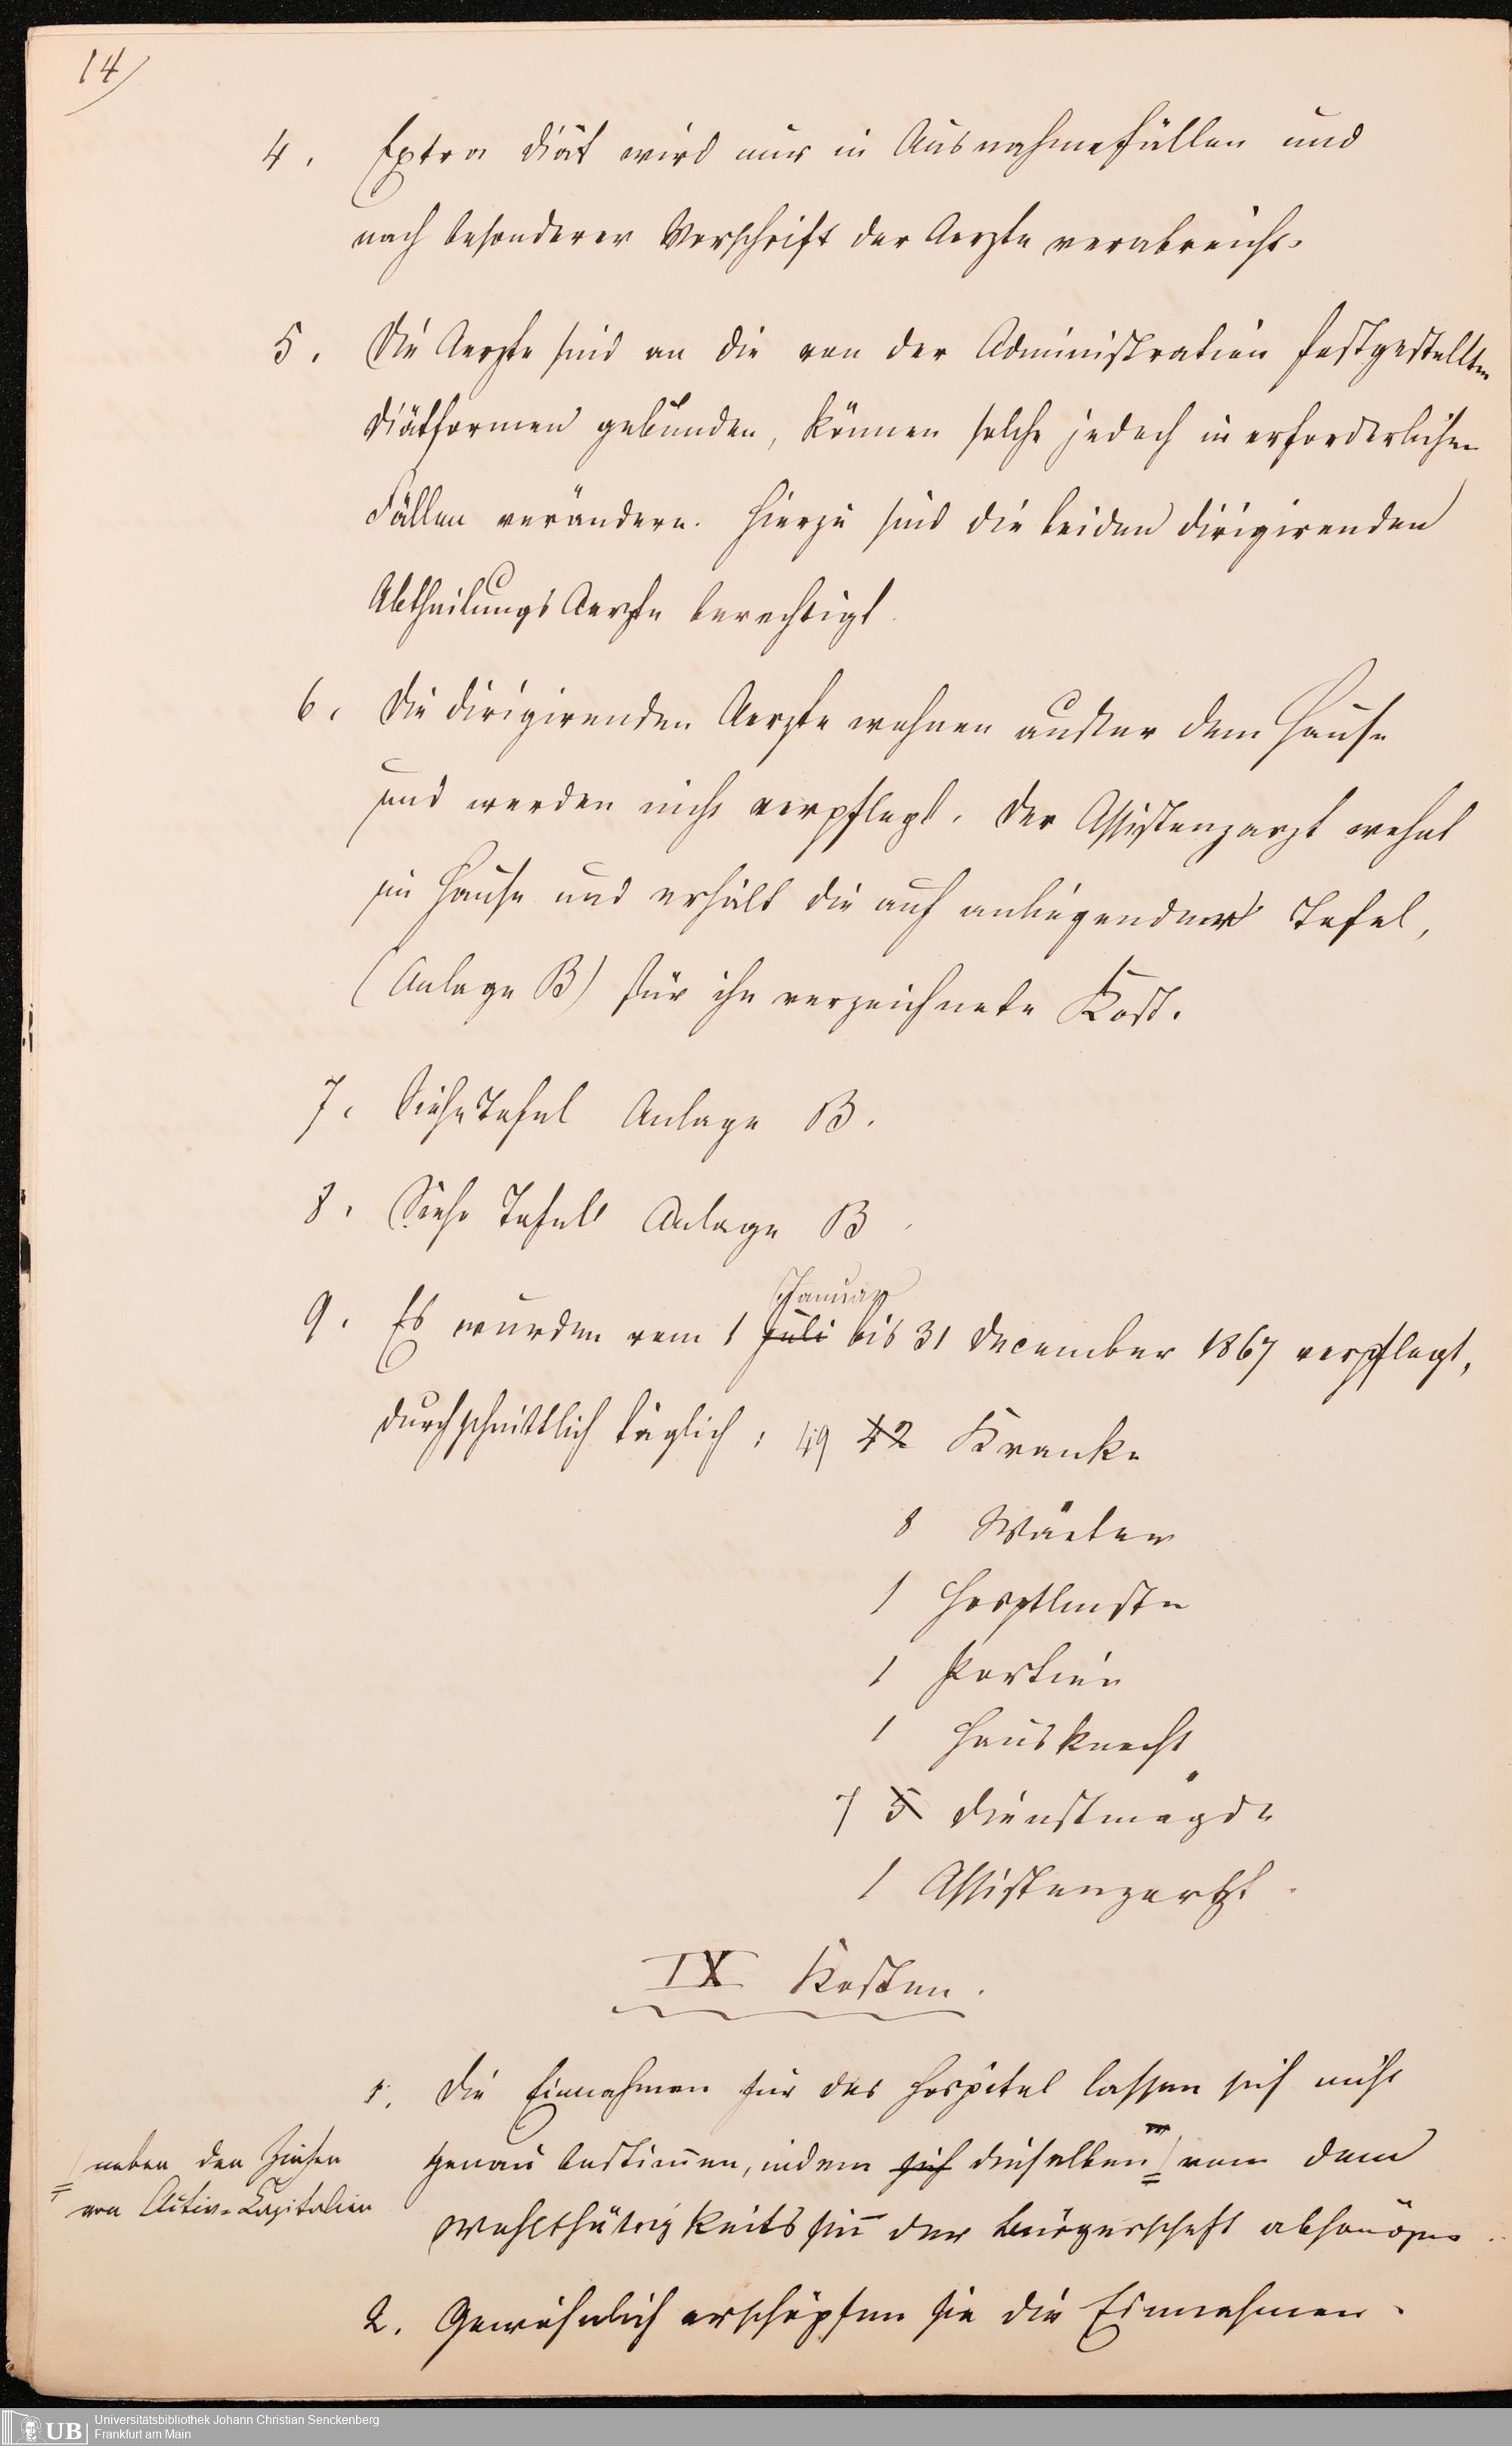 14
4. Extra Diät wird nur in Ausnahmefällen und
nach besonderer Vorschrift der Aerzte verabreicht.
5. Die Aerzte sind an die von der Administration festgestellten
Diätformen gebunden, können solche jedoch in erforderlichen
Fällen verändern. Hierzu sind die beiden dirigirenden
Abtheilungs Aerzte berechtigt
6. Die dirigirenden Aerzte wohnen außer dem Hause
und werden nicht verpflegt. Der Assistenzarzt wohnt
im Hause und erhält die auf anliegender Tafel,
(Anlage B) für ihn verzeichnete Kost.
7. Siehe Tafel Anlage B.
8. Siehe Tafel Anlage B
Januar
9. Es wurden vom 1 Juli bis 31 December 1867 verpflegt,
durchschnittlich täglich: 49 42 Kranke
8 Wärter
1 Hospitalmstr
1 Portier
1 Hausknecht
7 5 Dienstmägde
1 Assistenzarzt.
IX Kosten.
1. Die Einnahmen für das Hospital lassen sich nicht
genau bestimmen, indem sich dieselben von dem
neben den Zinsen
von Activ-Capitalien
Wohlthätigkeitssinn der Bürgerschaft abhängen.
2. Gewöhnlich erschöpfen sie die Einnahmen.
Universitätsbibliothek Johann Christian Senckenberg
Frankfurt am Main
UB